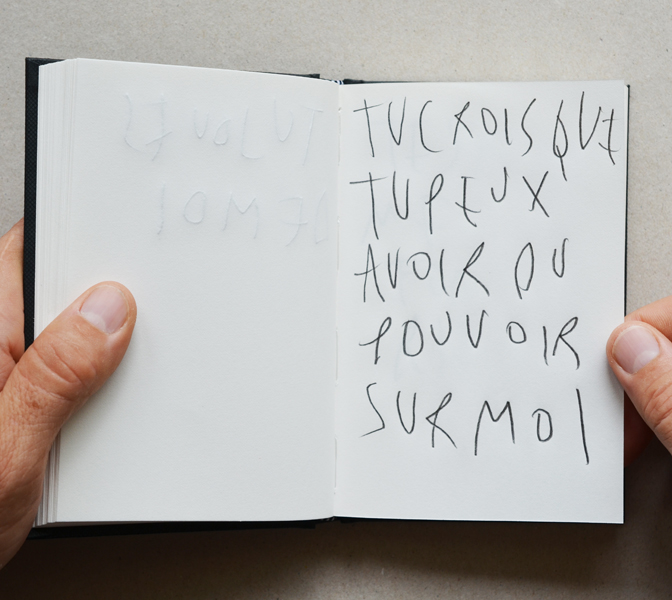 TU CROIS QUE
TU PEUX
AVOIR DU
POUVOIR
SUR MOI